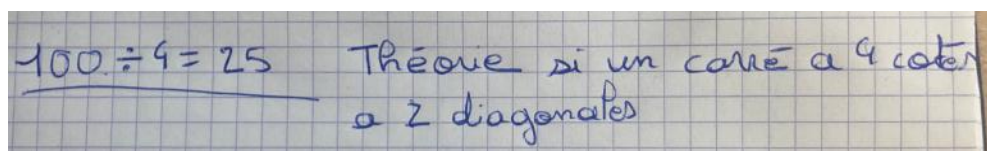 100 ÷ 4 = 25 Théorie si un carré a 4 cotés
a 2 diagonales